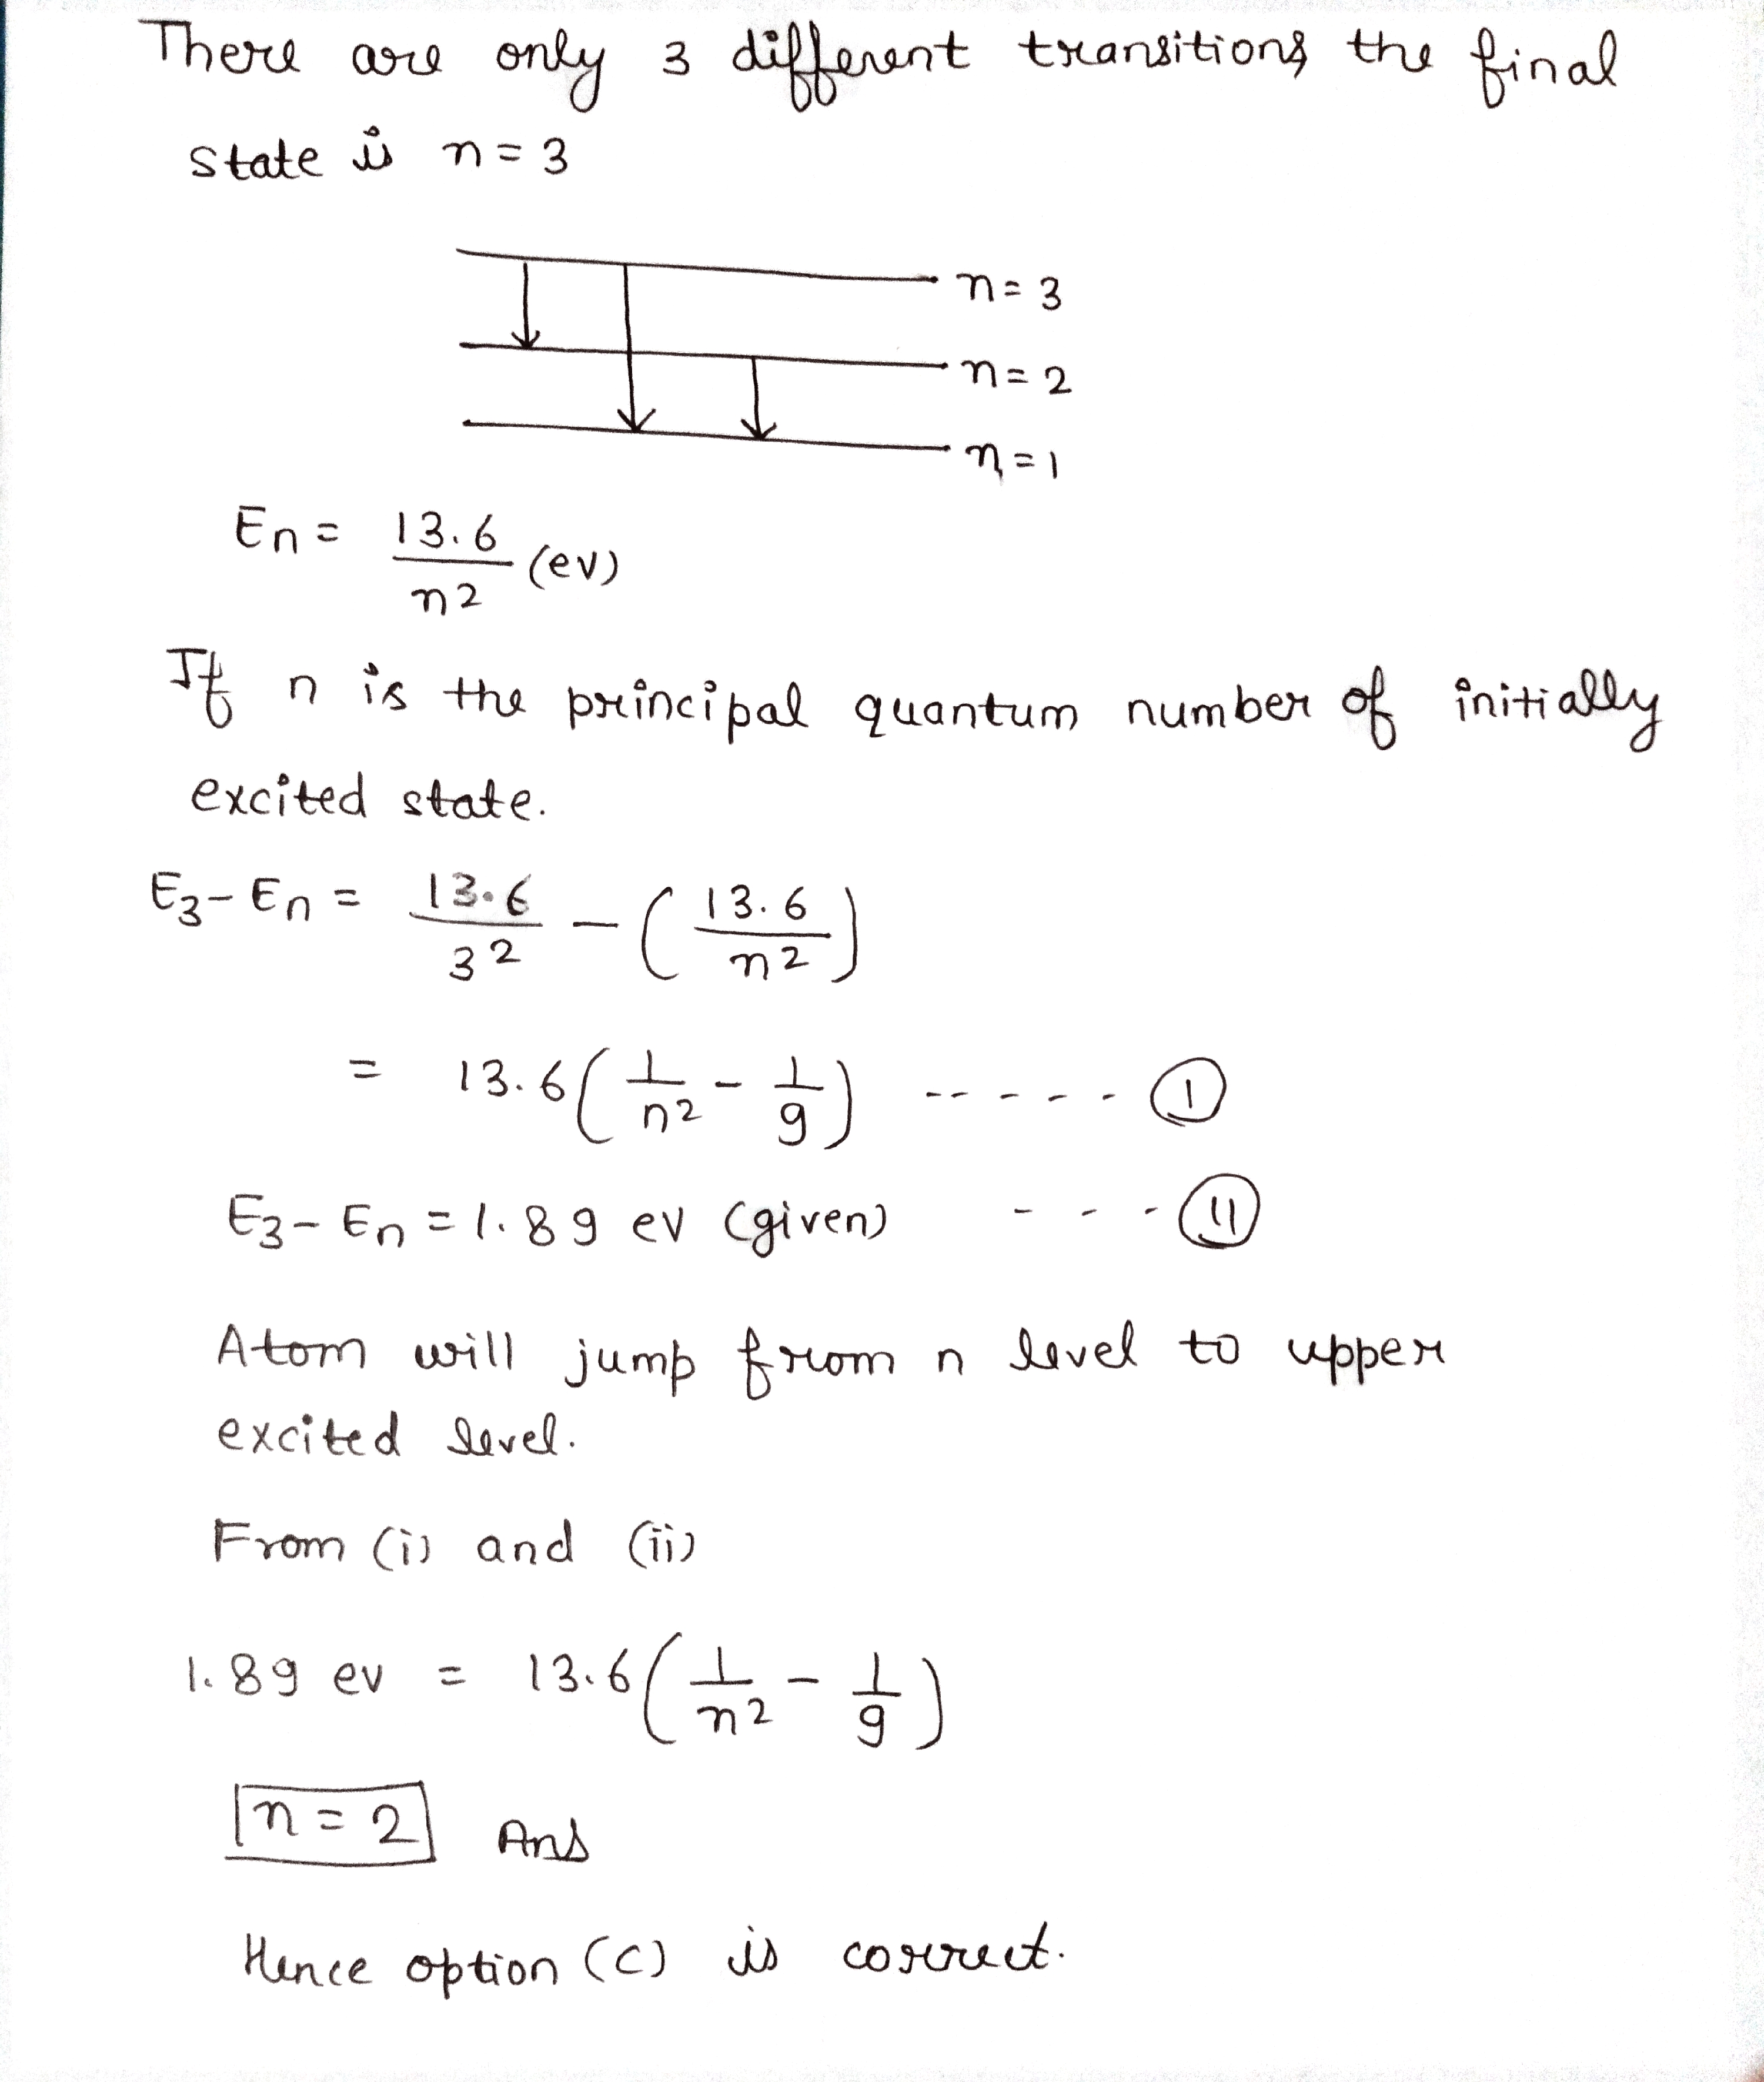 There are only 3 different transitions the final
state is n=3
n=3
n=2
n=1
En = 13.6/n2 (ev)
If n is the principal quantum number of initially
excited state.
E3-En = 13.6/32 - (13.6/n2)
= 13.6(1/n2 - 1/9) ------ (I)
E3-En = 1.89 ev (given) --- (II)
Atom will jump from n level to upper
excited level.
From (i) and (ii)
1.89 ev = 13.6(1/n2 - 1/9)
n=2 Ans
Hence option (C) is correct.